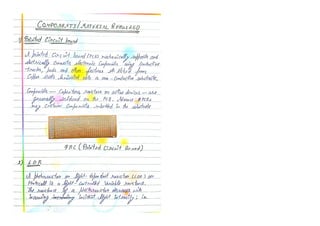 COMPONENTS/MATERIAL REQUIRED
1) Printed Circuit board
A printed Circuit board (PCB) mechanically supports and
electrically connects electronic Components using Conductive
Tracks, pads and other features etched from
Copper sheets laminated onto a non-conductive substrate.
Components — Capacitors, resistors or active devices — are
generally soldered on the PCB. Advance PCBs
may contain Components embedded in the substrate.
PBC (Printed Circuit Board)
2) LDR
A photoresistor or light-dependent resistor (LDR) or
Photocell is a light-controlled variable resistor.
The resistance of a photoresistor decreases with
increasing incident light intensity; in